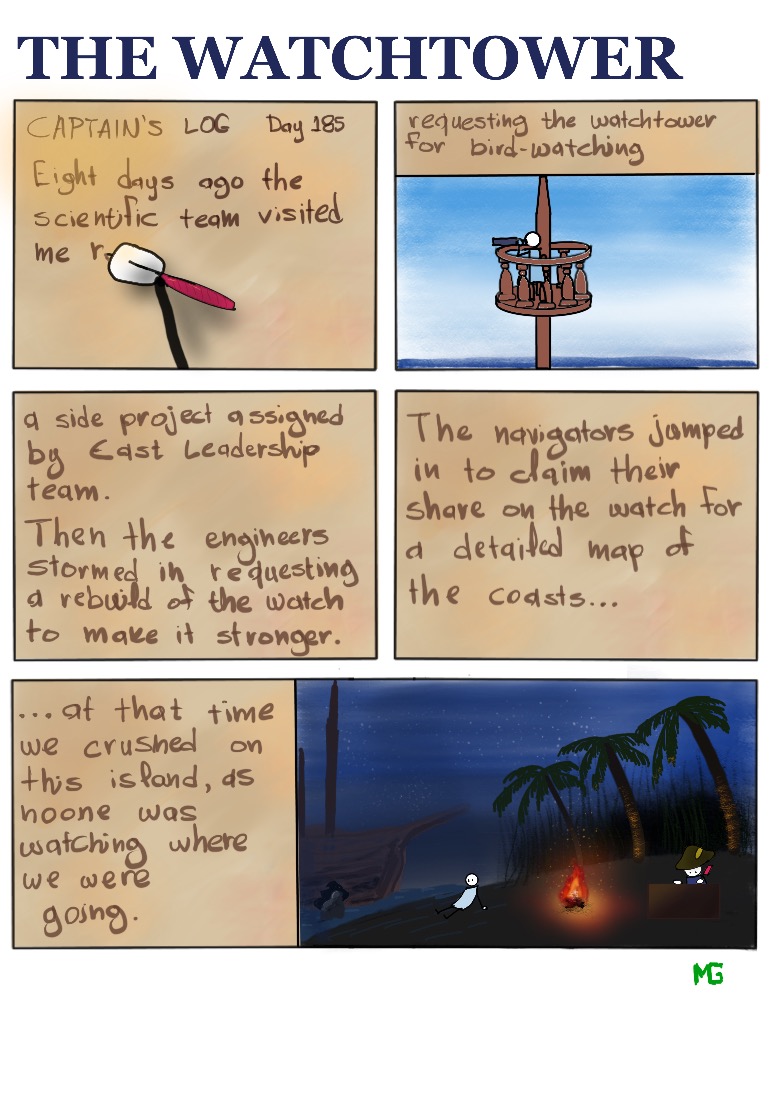 THE WATCHTOWER
CAPTAIN'S LOG Day 185
Eight days ago the
scientific team visited
me r
requesting the watchtower
for bird-watching
a side project assigned
by East Leadership
team.
Then the engineers
stormed in requesting
a rebuild of the watch
to make it stronger.
The navigators jumped
in to claim their
share on the watch for
a detailed map of
the coasts...
...at that time
we crushed on
this island, as
noone was
watching where
we were
going.
MG